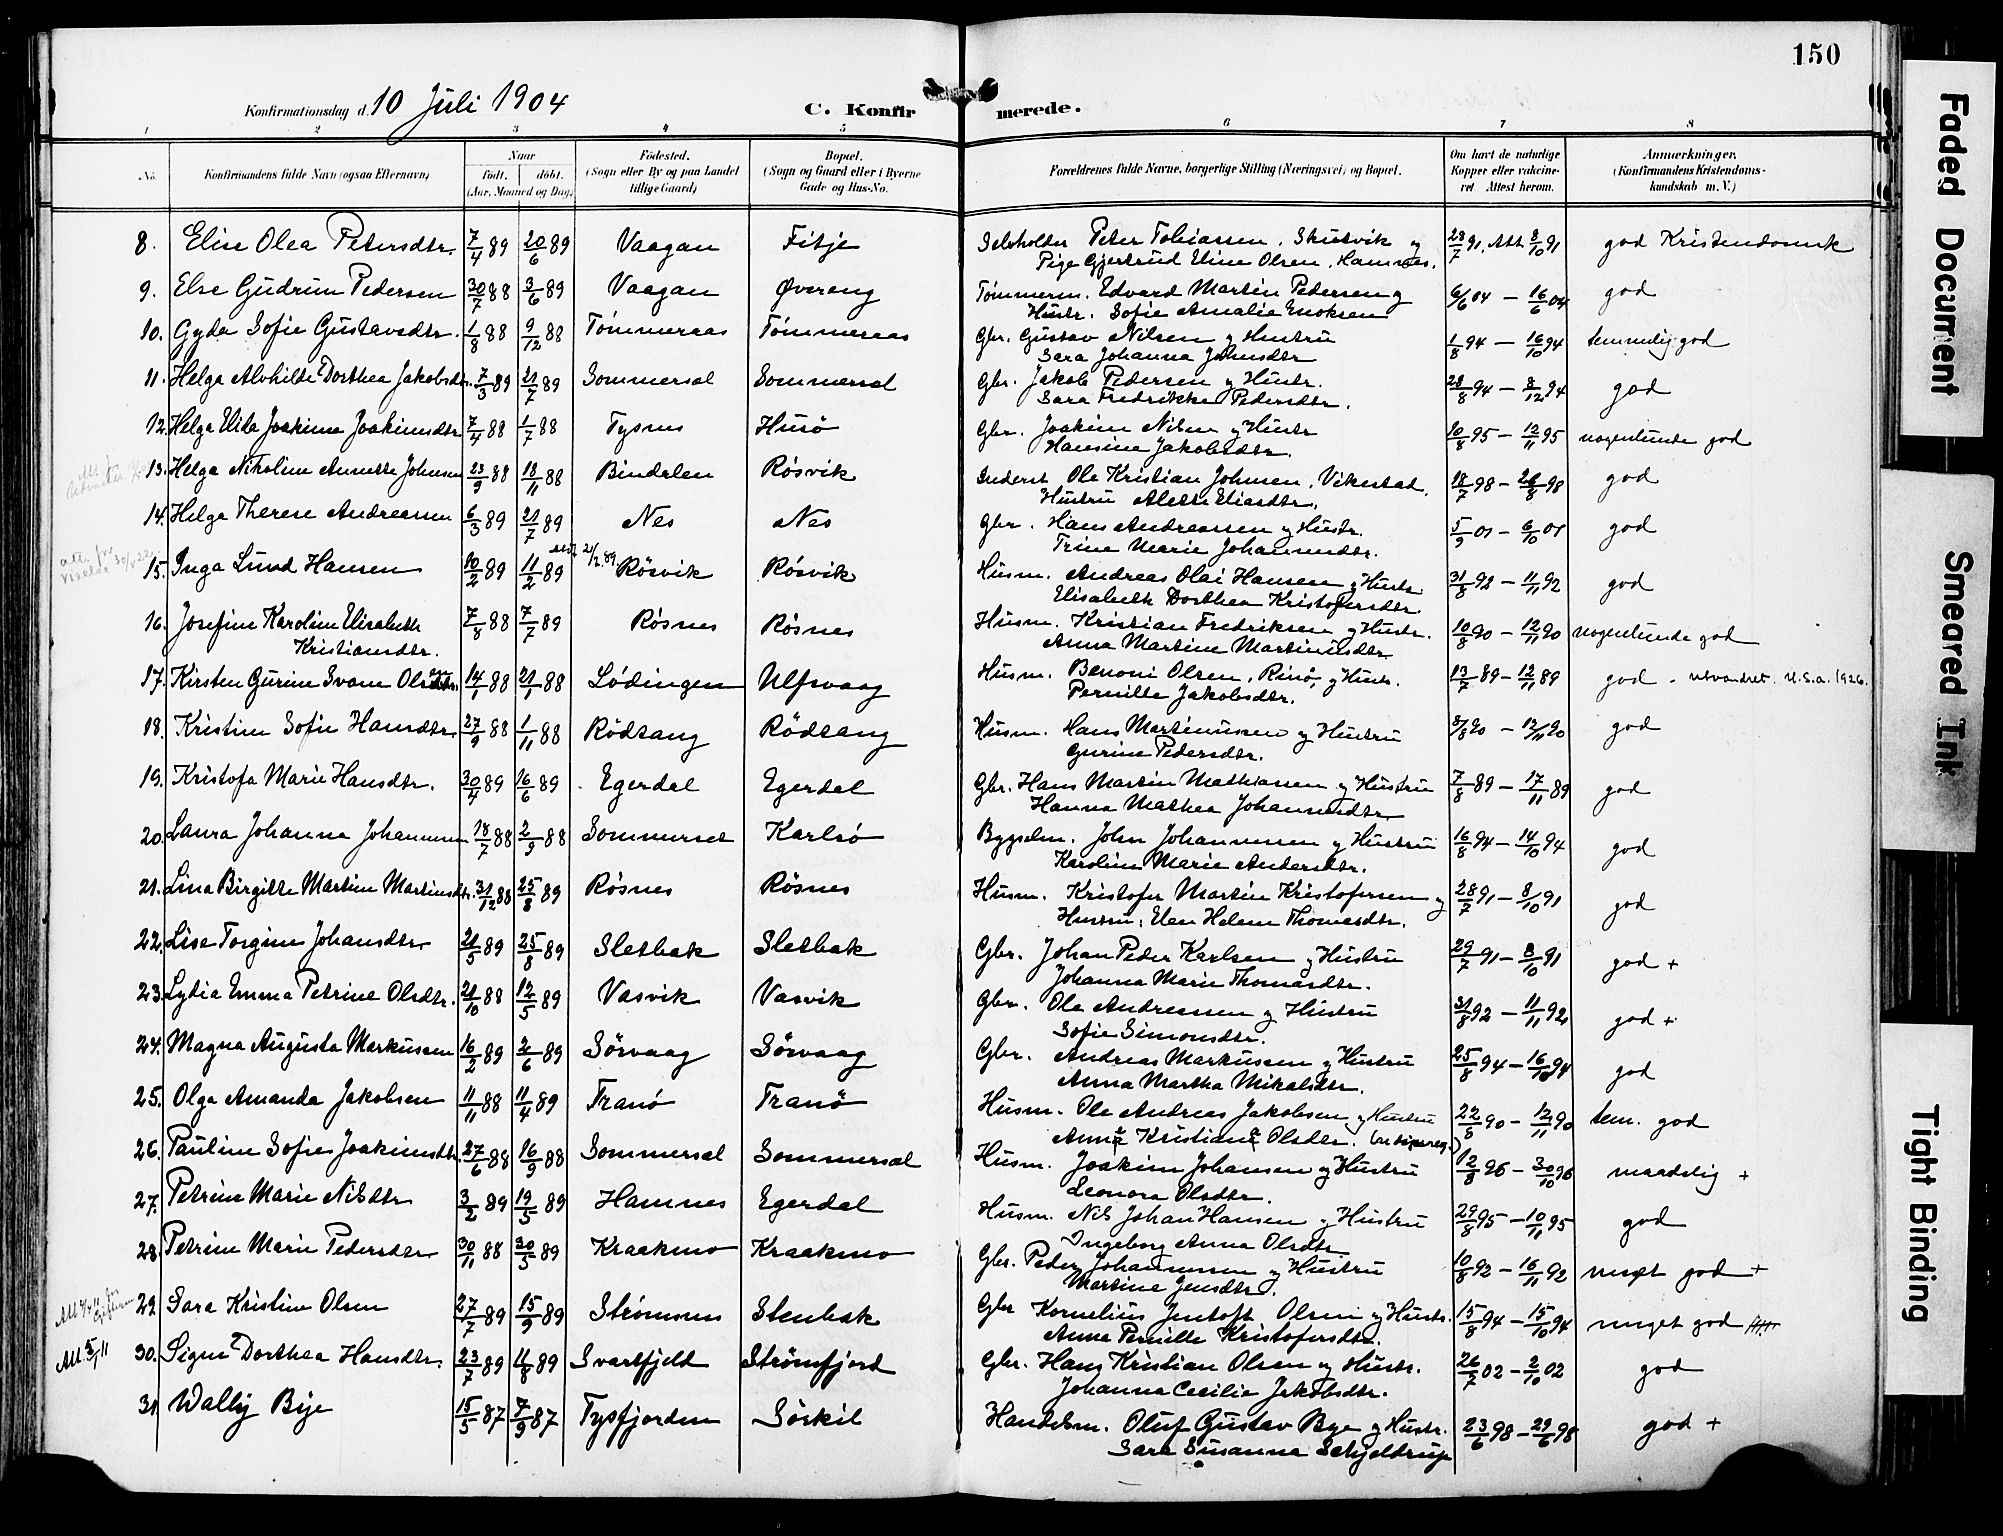 150
Konfirmationsdag d. 10 Juli 1904
C. Konfirmerede.
1 2 3 4 5 6 7 8
No. Konfirmandens fulde Navn (ogsaa Efternavn) Naar født. døbt. (Aar, Maaned og Dag) Fødested. (Sogn eller By og paa Landet tillige Gaard) Bopæl. (Sogn og Gaard eller i Byerne Gade og Hus-No. Forældrenes fulde Navne, borgerlige Stilling (Næringsvei) og Bopæl. Om havt de naturlige Kopper eller vaccineret Attest herom. Anmærkninger. (Konfirmandens Kristendomskundskab m. V.)
8. Elise Olea Petersdtr. 7/4 89 20/6 89 Vaagan Fitje Selvholder Peter Tobiassen, Skutvik og 28/7 91. Att 8/10 91 god Kristendomsk
Pige Gjertrud Eline Olsen, Hamnes.
9. Else Gudrun Pedersen 30/7 88 3/6 89 Vaagan Øvereng Tømmerm. Edvard Martin Pedersen og 6/6 04 — 16/6 04 god
Hustr. Sofie Amalie Enoksen
10. Gyda Sofie Gustavsdtr. 1/8 88 9/12 88 Tømmeraas Tømmeraas Gbr. Gustav Nilsen og Hustru 1/8 94 — 16/10 94 temmelig god
Sara Johanna Johnsdtr
11. Helga Alvhilde Dorthea Jakobsdtr. 7/3 89 21/7 89 Sommersel Sommersel Gbr. Jakob Pedersen og Hustr. 28/8 94 — 8/12 94 god
Sara Fredrikke Pedersdtr.
12. Helga Elida Joakime Joakimsdtr 7/4 88 1/7 88 Tysnes Husø Gbr. Joakim Nilsen og Hustr 10/8 95 — 12/11 95 nogenlunde god
Hansine Jakobsdtr.
13. Helga Nikoline Annette Johnsen 23/9 88 18/11 88 Bindalen Røsvik Inderst Ole Kristian Johnsen, Vikestad, 18/7 98 — 26/8 98 god
Hustru Alette Eliasdtr.
14. Helga Therese Andreassen 6/3 89 21/7 89 Nes Nes Gbr. Hans Andreassen og Hustr. 5/9 01 — 6/10 01 god
Trine Marie Johannesdtr.
15. Inga Lund Hansen 10/2 89 11/2 89 Røsvik Røsvik Husm. Andreas Olai Hansen og Hustr 31/8 92 — 11/11 92 god
Elisabeth Dorthea Kristofersdtr
16. Josefine Karoline Elisabeth 7/8 88 7/7 89 Røsnes Røsnes Husm. Kristian Fredriksen og Hustr. 10/8 90 — 12/11 90 nogenlunde god
Kristiansdtr. Anna Martine Martinusdtr
17. Kirsten Gurine Svane 14/1 88 21/1 88 Lødingen Ulfsvaag Husm. Benoni Olsen, Rinø, og Hustr. 13/7 89 — 12/11 89 god - utvandret. U.S.a. 1926.
Pernille Jakobsdtr.
18. Kristine Sofie Hansdtr 27/9 88 1/11 88 Rødsang Rødsang Husm. Hans Martinussen og Hustru 3/8 90 — 12/11 90 god
Gurine Pedersdtr.
19. Kristofa Marie Hansdtr. 30/4 89 16/6 89 Egerdal Egerdal Gbr. Hans Martin Mathiassen og Hustru 7/8 89 — 17/11 89 god
Hanna Mathea Johannesdtr
20. Laura Johanna Johannesen 18/7 88 2/9 88 Sommerset Karlsø Bygselm. John Johannesen og Hustru 16/8 94 — 14/10 94 god
Karoline Marie Andersdtr.
21. Lina Birgitte Martine Martinsdtr. 31/12 88 25/8 89 Røsnes Røsnes Husm. Kristofer Martin Kristofersen og 28/7 91 — 8/10 91 god
Hustru, Elen Helene Thomasdtr.
22. Lise Torgine Johansdtr 21/5 89 25/8 89 Sletbak Sletbak Gbr. Johan Peder Karlsen og Hustru 29/7 91 — 8/10 91 god +
Johanna Marie Thomasdtr.
23. Lydia Emma Petrine Olsdtr. 21/10 88 12/5 89 Vasvik Vasvik Gbr. Ole Andreassen og Hustru 31/8 92 — 11/11 92 god +
Sofie Simonsdtr.
24. Magna Augusta Markussen 16/2 89 2/6 89 Sørvaag Sørvaag Gbr. Andreas Markussen og Hustru 25/8 94 — 16/10 94 god
Anna Martha Mikalsdtr.
25. Olga Amanda Jakobsen 11/11 88 11/4 89 Tranø Tranø Husm. Ole Andreas Jakobsen og Hustru 22/8 90 — 12/11 90 tem. god
Anna Kristiane Olsdtr.
26. Pauline Sofie Joakimsdtr. 27/6 88 16/9 88 Sommersel Sommersel Husm. Joakim Johansen og Hustru 12/8 96 — 30/10 96 maadelig +
Leonora Olsdtr.
27. Petrine Marie Nilsdtr 3/2 89 19/5 89 Hamnes Egerdal Husm. Nils Johan Hansen og Hustru 29/8 95 — 10/11 95 god
Ingeborg Anna Olsdtr
28. Petrine Marie Pedersdtr 30/11 88 30/5 89 Kraakmo Kraakmo Gbr. Peder Johannesen og Hustru 10/8 92 — 16/11 92 meget god +
Martine Jensdtr.
29. Sara Kristine Olsen 27/7 89 15/9 89 Strømsnes Stenbak Gbr Kornelius Jentoft Olsen og Hustr. 15/8 94 — 15/10 94 meget god
Anna Pernille Kristofersdtr.
Att. 5/1 11 30. Signe Dorthea Hansdtr. 23/7 89 11/8 89 Svartfjeld Strømfjord Gbr. Hans Kristian Olsen og Hustr. 26/7 02 — 2/10 02 god
Johanna Cecilie Jakobsdtr.
31. Wally Bye 15/5 87 7/9 87 Tysfjorden Sørkil Handelsm. Oluf Gustav Bye og Hustr. 23/6 98 — 29/6 98 god +
Sara Susanna Schjeldrup
Faded Document
Smeared Ink
Tight Binding